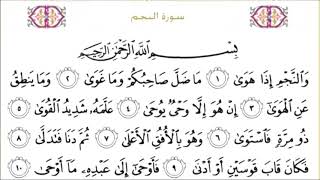 سورة النجم
بِسْمِ اللَّهِ الرَّحْمَٰنِ الرَّحِيمِ
وَالنَّجْمِ إِذَا هَوَىٰ ١ مَا ضَلَّ صَاحِبُكُمْ وَمَا غَوَىٰ ٢ وَمَا يَنطِقُ
عَنِ الْهَوَىٰ ٣ إِنْ هُوَ إِلَّا وَحْيٌ يُوحَىٰ ٤ عَلَّمَهُ شَدِيدُ الْقُوَىٰ ٥
ذُو مِرَّةٍ فَاسْتَوَىٰ ٦ وَهُوَ بِالْأُفُقِ الْأَعْلَىٰ ٧ ثُمَّ دَنَا فَتَدَلَّىٰ ٨
فَكَانَ قَابَ قَوْسَيْنِ أَوْ أَدْنَىٰ ٩ فَأَوْحَىٰ إِلَىٰ عَبْدِهِ مَا أَوْحَىٰ ١٠